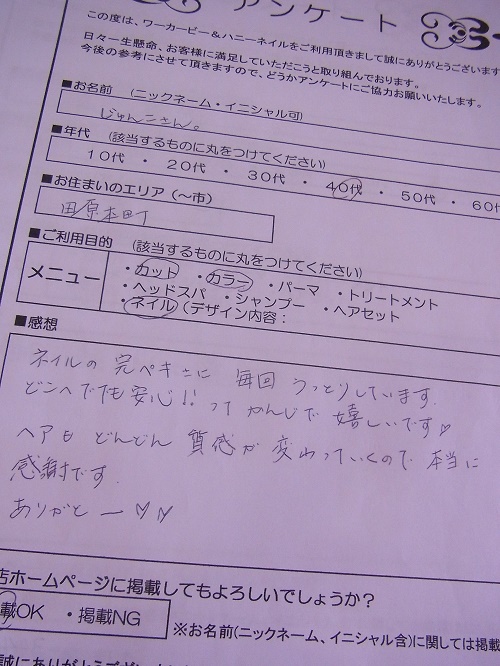 アンケート
この度は、ワーカービー＆ハニーネイルをご利用頂きまして誠にありがとうございます
日々一生懸命、お客様に満足していただこうと取り組んでおります。
今後の参考にさせて頂きますので、どうかアンケートにご協力お願いいたします。
■お名前 （ニックネーム・イニシャル可）
じゅんこさん。
■年代 （該当するものに丸をつけてください）
10代 ・ 20代 ・ 30代 ・ 40代 ・ 50代 ・ 60代
■お住まいのエリア（～市）
田原本町
■ご利用目的 （該当するものに丸をつけてください）
メニュー
・カット ・カラー ・パーマ ・トリートメント
・ヘッドスパ ・シャンプー ・ヘアセット
・ネイル（デザイン内容：
■感想
ネイルの 完ペキさに 毎回 うっとりしています.
どこへでも安心!! って かんじで 嬉しいです♡
ヘアも どんどん 質感が 変わっていくので 本当に
感謝です.
ありがとー♡♡
店ホームページに掲載してもよろしいでしょうか？
載OK ・掲載NG
※お名前(ニックネーム、イニシャル含)に関しては掲載